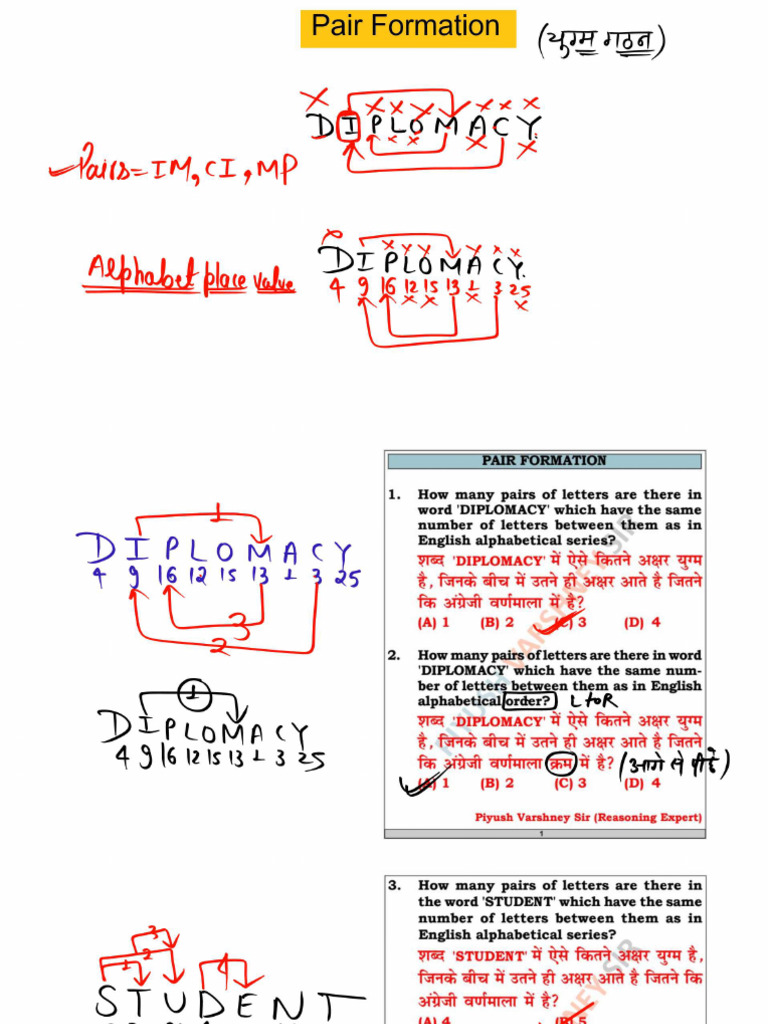 Pair Formation
(युग्म गठन)
DIPLOMACY.
Pairs = IM, CI, MP
Alphabet place value
DIPLOMACY.
4 9 16 12 15 13 1 3 25
PAIR FORMATION
1. How many pairs of letters are there in
word 'DIPLOMACY' which have the same
number of letters between them as in
English alphabetical series?
शब्द 'DIPLOMACY' में ऐसे कितने अक्षर युग्म
है, जिनके बीच में उतने ही अक्षर आते है जितने
कि अंग्रेजी वर्णमाला में है?
(A) 1 (B) 2 (C) 3 (D) 4
1
DIPLOMACY
4 9 16 12 15 13 1 3 25
3
2
2. How many pairs of letters are there in word
'DIPLOMACY' which have the same num-
ber of letters between them as in English
alphabetical order? L to R
शब्द 'DIPLOMACY' में ऐसे कितने अक्षर युग्म
है, जिनके बीच में उतने ही अक्षर आते है जितने
कि अंग्रेजी वर्णमाला क्रम में है? (आगे से पीछे)
(A) 1 (B) 2 (C) 3 (D) 4
1
DIPLOMACY
4 9 16 12 15 13 1 3 25
Piyush Varshney Sir (Reasoning Expert)
1
3. How many pairs of letters are there in
the word 'STUDENT' which have the same
number of letters between them as in
English alphabetical series?
शब्द 'STUDENT' में ऐसे कितने अक्षर युग्म है,
जिनके बीच में उतने ही अक्षर आते है जितने कि
अंग्रेजी वर्णमाला में है?
(A) 4 (B) 5
3
1 2 4
STUDENT
PIYUSH VARSHNEY SIR